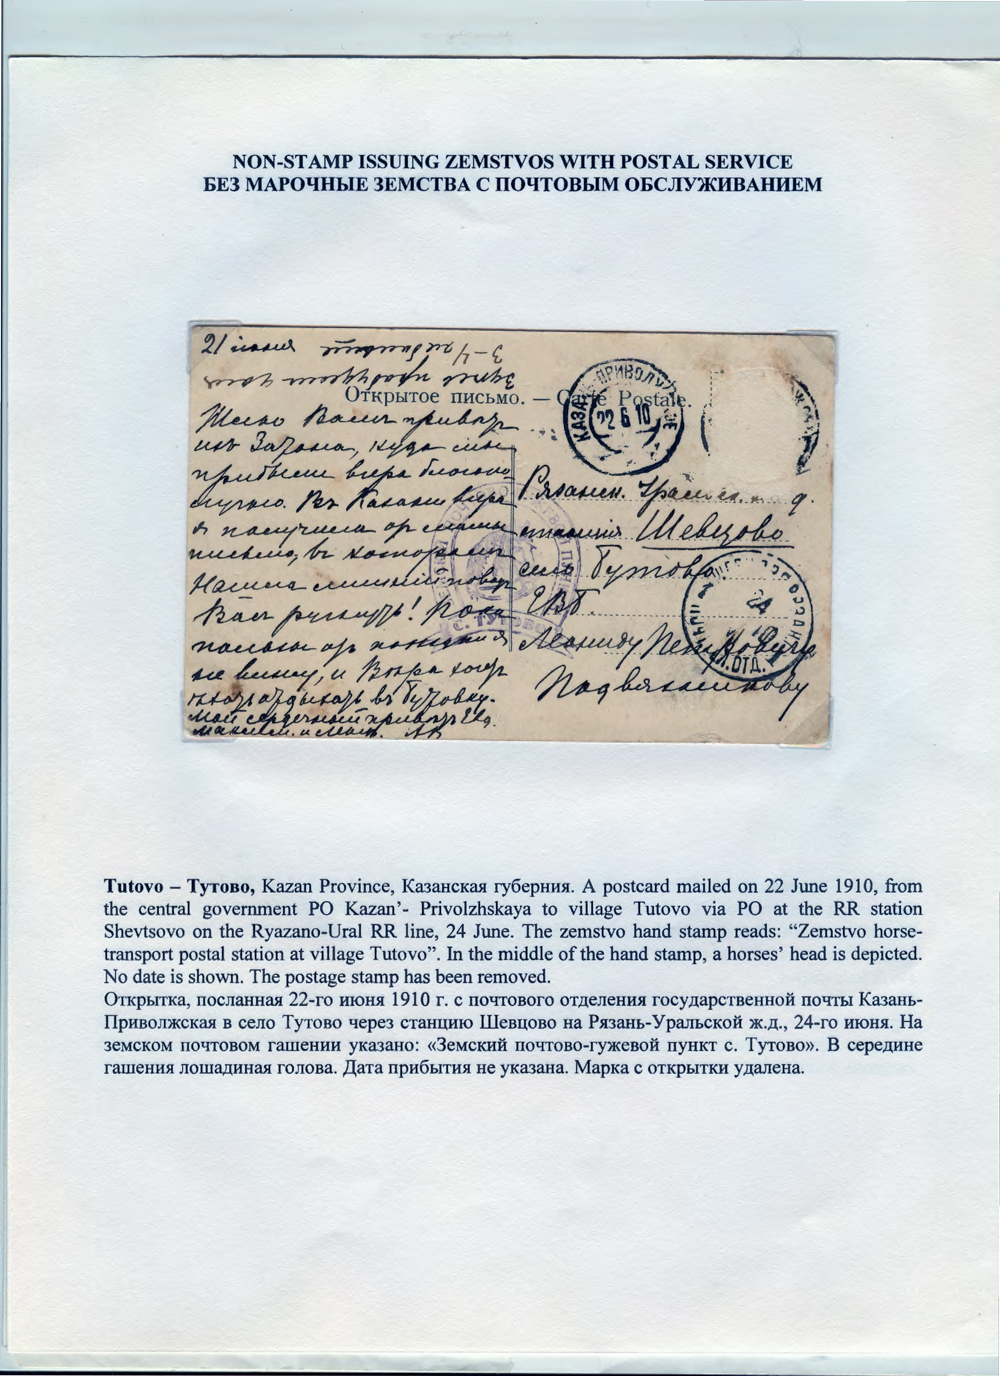 NON-STAMP ISSUING ZEMSTVOS WITH POSTAL SERVICE
БЕЗ МАРОЧНЫЕ ЗЕМСТВА С ПОЧТОВЫМ ОБСЛУЖИВАНИЕМ
21 июня
3-4
Открытое письмо. — Carte Postale.
КАЗАНЬ-ПРИВОЛЖ
22 6 10
Шлю Вамъ привѣтъ
изъ Затона, куда мы
прибыли вчера благопо-
лучно. Въ Казани вчера
я получила отъ мамы
письмо, въ которомъ
не вижу, и
отдыхать въ
Мой сердечный привѣтъ
Рязанск. Уральск. д.
станція Шевцово
село
Е.В.Б.
Леониду Петровичу
Подвязникову
С. ТУТОВО
24
ОТД.
Tutovo – Тутово, Kazan Province, Казанская губерния. A postcard mailed on 22 June 1910, from
the central government PO Kazan’- Privolzhskaya to village Tutovo via PO at the RR station
Shevtsovo on the Ryazano-Ural RR line, 24 June. The zemstvo hand stamp reads: “Zemstvo horse-
transport postal station at village Tutovo”. In the middle of the hand stamp, a horses’ head is depicted.
No date is shown. The postage stamp has been removed.
Открытка, посланная 22-го июня 1910 г. с почтового отделения государственной почты Казань-
Приволжская в село Тутово через станцию Шевцово на Рязань-Уральской ж.д., 24-го июня. На
земском почтовом гашении указано: «Земский почтово-гужевой пункт с. Тутово». В середине
гашения лошадиная голова. Дата прибытия не указана. Марка с открытки удалена.